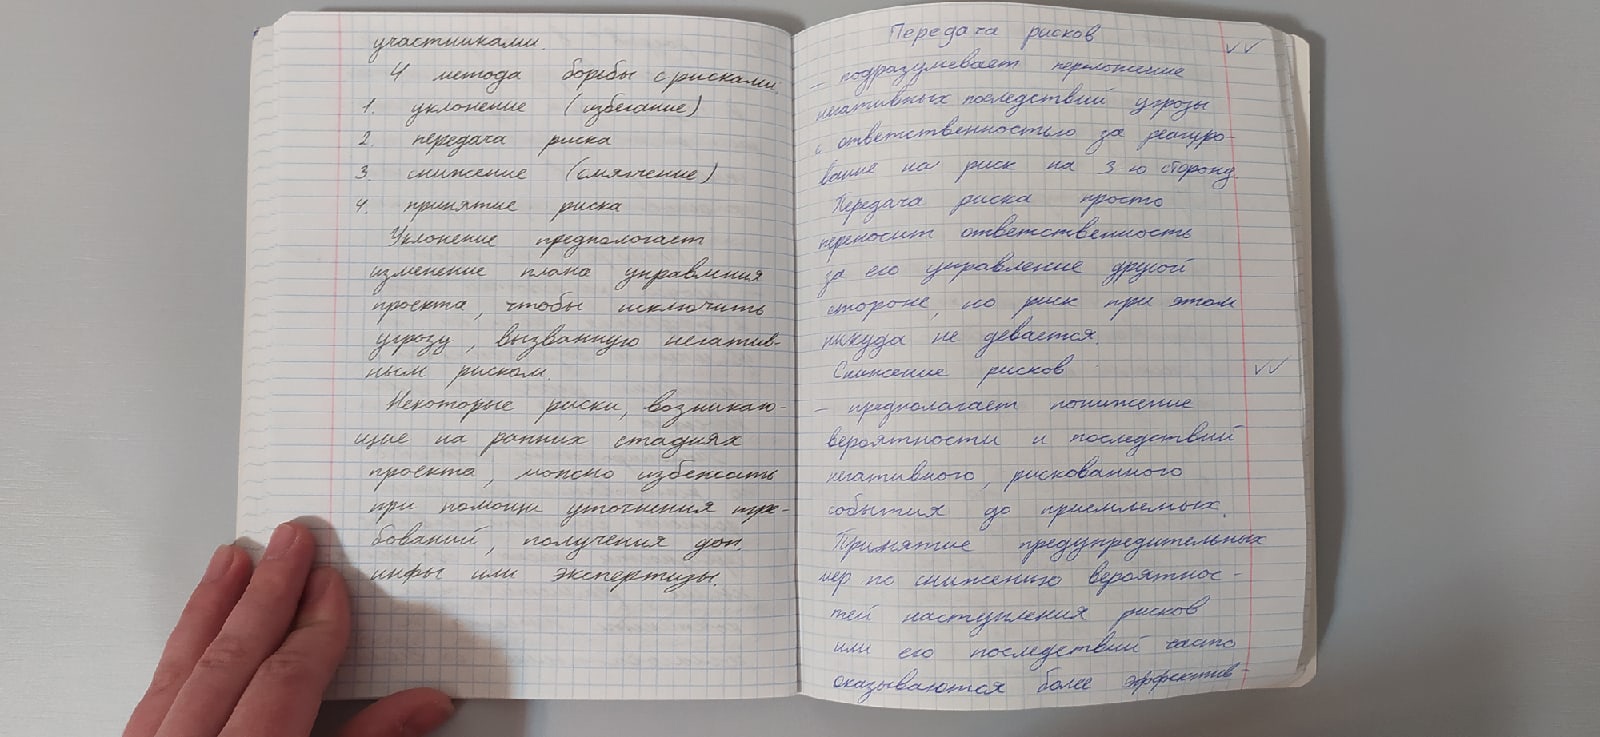 участниками.
4 метода борьбы с рисками:
1. уклонение (избегание)
2. передача риска
3. снижение (смягчение)
4. принятие риска
Уклонение предпологает
изменение плана управления
проекта, чтобы исключить
угрозу, вызванную негатив-
ным риском.
Некоторые риски, возникаю-
щие на ранних стадиях
проекта, можно избежать
при помощи уточнения тре-
бований, получения доп.
инфы или экспертизы.
Передача рисков
– подразумевает переложение
негативных последствий угрозы
с ответственностью за реагиро-
вание на риск на 3-ю сторону.
Передача риска просто
переносит ответственность
за его управление другой
стороне, но риск при этом
никуда не девается.
Снижение рисков
– предпологает понижение
вероятности и последствий
негативного, рискованного
события до приемлемых.
Принятие предупредительных
мер по снижению вероятнос-
тей наступления рисков
или его последствий часто
оказываются более эффектив-